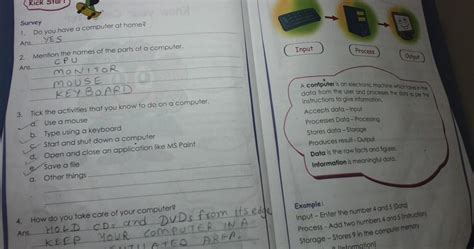 Kick Start
Survey
1. Do you have a computer at home?
Ans. YES
2. Mention the names of the parts of a computer.
Ans. CPU
MONITOR
MOUSE
KEYBOARD
3. Tick the activities that you know to do on a computer.
a. Use a mouse
b. Type using a keyboard
c. Start and shut down a computer
d. Open and close an application like MS Paint
e. Save a file
Other things
4. How do you take care of your computer?
Ans. HOLD CDs and DVDs from its edge
KEEP YOUR COMPUTER IN A
VENTILATED AREA.
Input
Process
Output
A computer is an electronic machine which takes the
data from the user and processes the data as per the
instructions to give information.
Accepts data - Input
Processes Data - Processing
Stores data - Storage
Produces result - Output
Data is the raw facts and figures.
Information is meaningful data.
Example:
Input - Enter the number 4 and 5 (Data)
Process - Add two numbers
Storage - Stores 9 in the computer memory